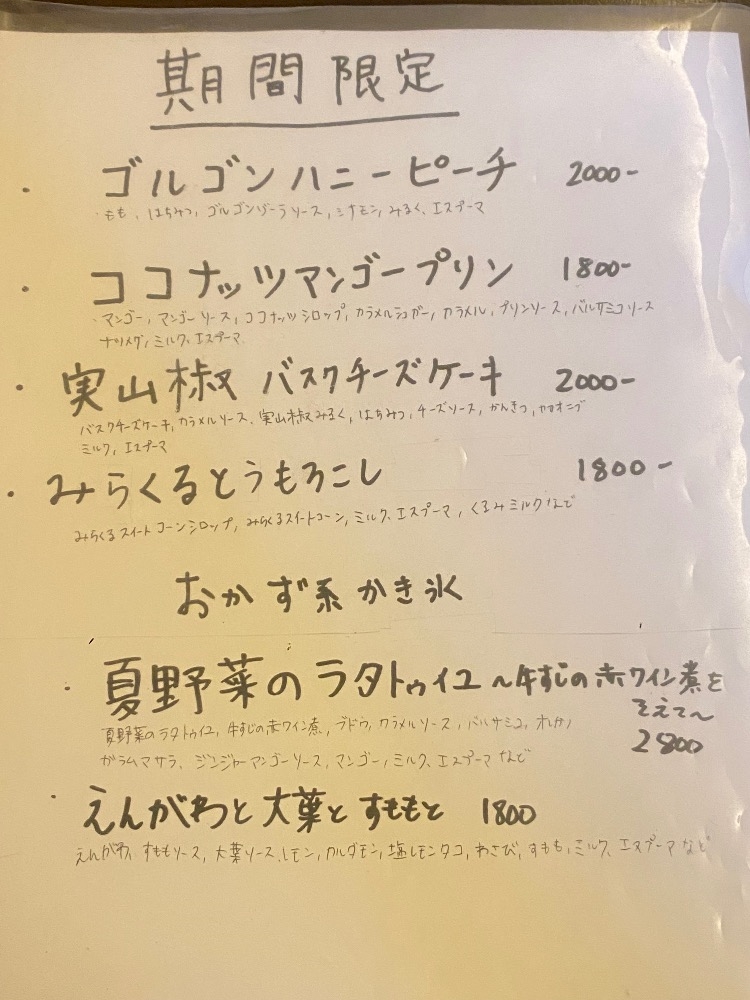 期間限定
ゴルゴンハニーピーチ 2000-
もも、はちみつ、ゴルゴンゾーラソース、シナモン、みるく、エスプーマ
ココナッツマンゴープリン 1800-
マンゴー、マンゴーソース、ココナッツシロップ、カラメルシュガー、カラメル、プリンソース、バルサミコソース
ナツメグ、ミルク、エスプーマ
実山椒 バスクチーズケーキ 2000-
バスクチーズケーキ、カラメルソース、実山椒みるく、はちみつ、チーズソース、かんきつ、カカオニブ
ミルク、エスプーマ
みらくるとうもろこし 1800-
みらくるスイートコーンシロップ、みらくるスイートコーン、ミルク、エスプーマ、くるみミルクなど
おかず系かき氷
夏野菜のラタトゥイユ〜牛すじの赤ワイン煮を
そえて〜
夏野菜のラタトゥイユ、牛すじの赤ワイン煮、ブドウ、カラメルソース、バルサミコ、オレガノ
2800
ガラムマサラ、ジンジャーマンゴーソース、マンゴー、ミルク、エスプーマなど
えんがわと大葉とすももと 1800
えんがわ、すももソース、大葉ソース、レモン、カルダモン、塩レモンタコ、わさび、すもも、ミルク、エスプーマなど